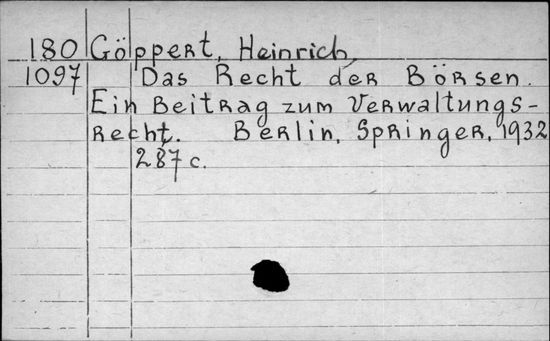 180 Göppert, Heinrich,
1097 Das Recht der Börsen.
Ein Beitrag zum Verwaltungs-
recht. Berlin, Springer, 1932
287 c.